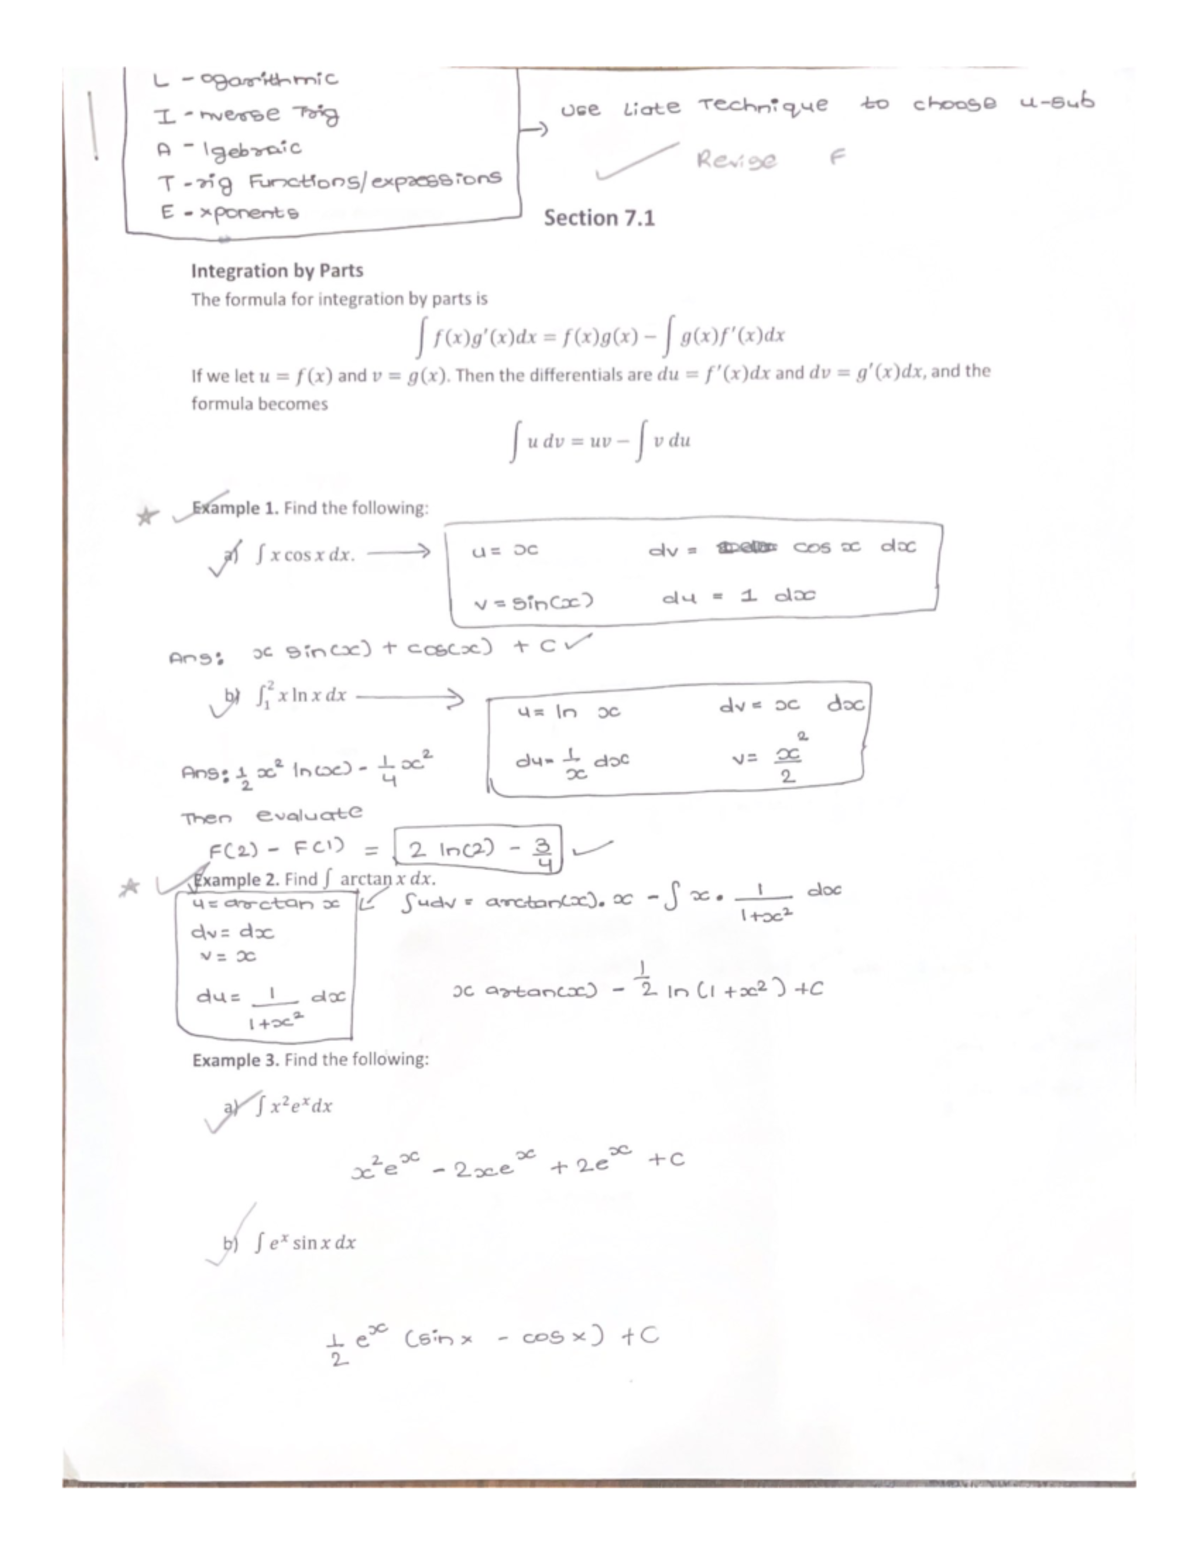 L - ogarithmic
I - nverse Trig
A - lgebraic
T - rig Functions/expressions
E - xponents
use Liate Technique to choose u-sub
Revise F
Section 7.1
Integration by Parts
The formula for integration by parts is
∫ f(x)g'(x)dx = f(x)g(x) − ∫ g(x)f'(x)dx
If we let u = f(x) and v = g(x). Then the differentials are du = f'(x)dx and dv = g'(x)dx, and the
formula becomes
∫ u dv = uv − ∫ v du
Example 1. Find the following:
a) ∫ x cos x dx.
u = x dv = cos x dx
v = sin(x) du = 1 dx
Ans: x sin(x) + cos(x) + C
b) ∫₁² x ln x dx
u = ln x dv = x dx
du = 1/x dx v = x²/2
Ans: 1/2 x² ln(x) - 1/4 x²
Then evaluate
F(2) - F(1) = 2 ln(2) - 3/4
Example 2. Find ∫ arctan x dx.
u = arctan x
dv = dx
v = x
du = 1/(1+x²) dx
∫udv = arctan(x). x - ∫ x • 1/(1+x²) dx
x artan(x) - 1/2 ln (1 + x²) + C
Example 3. Find the following:
a) ∫ x²eˣdx
x²eˣ - 2xeˣ + 2eˣ + C
b) ∫ eˣ sin x dx
1/2 eˣ (sin x - cos x) + C